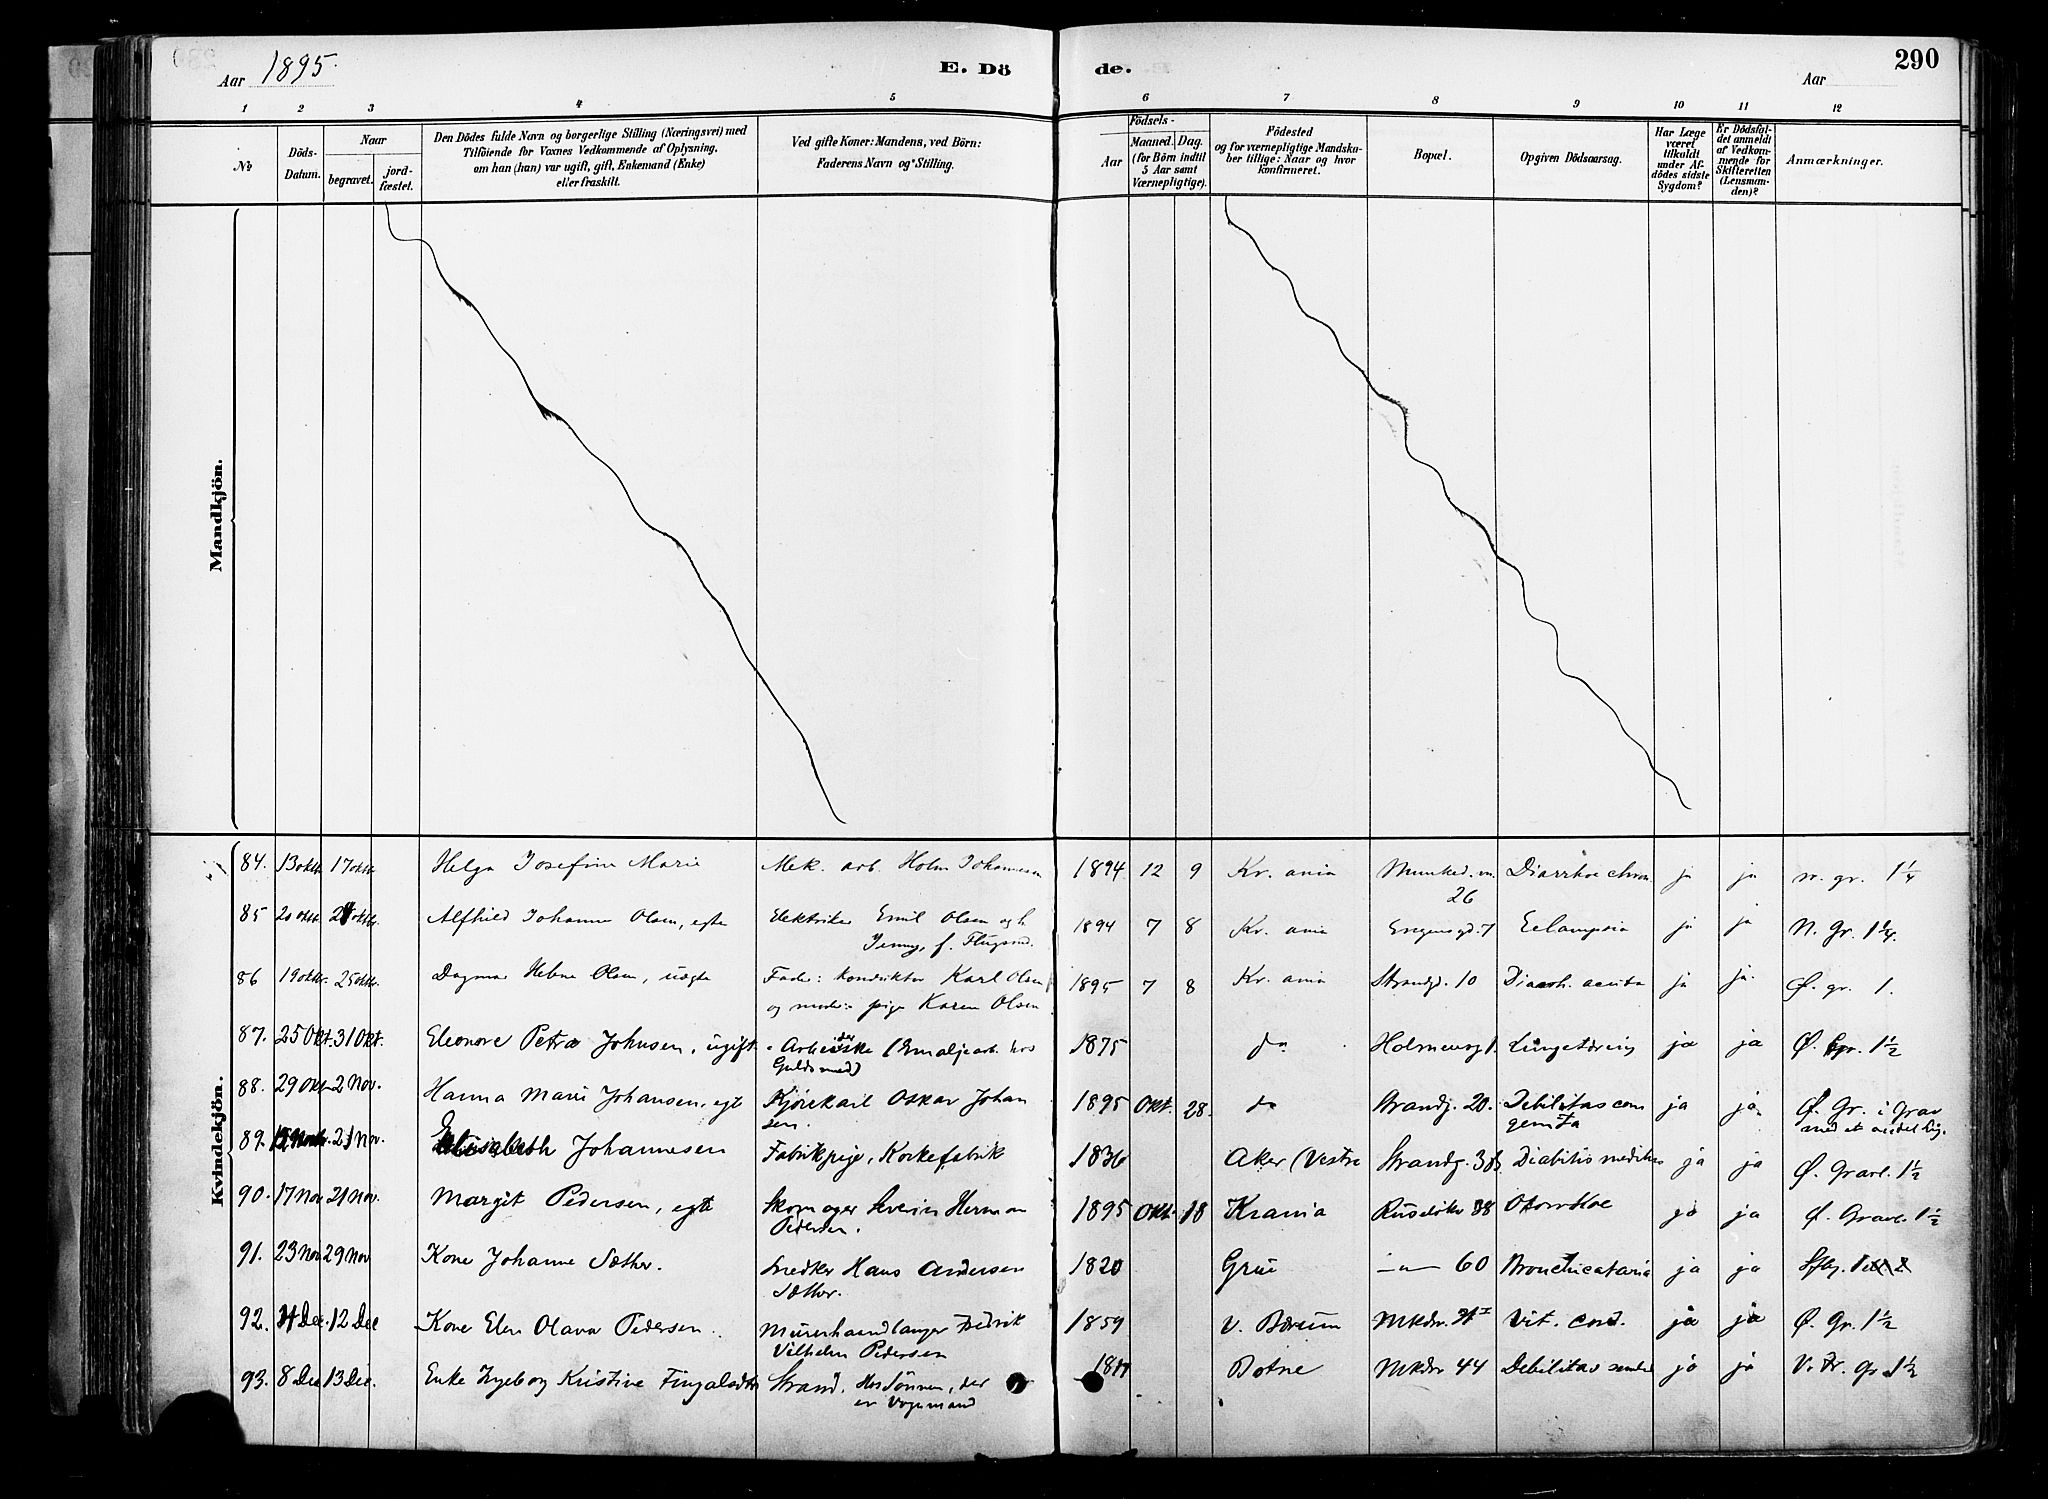 Aar 1895.
E. Dö
de.
Aar
290
1 2 3 4 5 6 7 8 9 10 11 12
№
Döds-Datum.
Naar
begravet.
jord-fæstet.
Den Dödes fulde Navn og borgerlige Stilling (Næringsvei) med
Tilföiende for Voxnes Vedkommende af Oplysning,
om han (hun) var ugift, gift, Enkemand (Enke)
eller fraskilt.
Ved gifte Koner: Mandens, ved Börn:
Faderens Navn og Stilling.
Födsels-
Aar
Maaned. Dag.
(for Börn indtil
5 Aar samt
Værnepligtige).
Födested
og for værnepligtige Mandska-
ber tillige: Naar og hvor
konfirmeret.
Bopæl.
Opgiven Dödsaarsag.
Har Læge
været
tilkaldt
under Af-
dödes sidste
Sygdom?
Er Dödsfal-
det anmeldt
af Vedkom-
mende for
Skifteretten
(Lensman-
den)?
Anmærkninger.
Mandkjön.
Kvindekjön.
84. 13 oktr. 17 oktr. Helga Josefine Marie Mek. arb. Holm Johannesen 1894 12 9 Kr.ania 26 Diarrhoe chron. ja ja n. gr. 1 1/4
85 20 oktr. oktr. Alfhild Johanne Olsen, egte Elektriker Emil Olsen og h. 1894 7 8 Kr. ania Engensgd. 7 Eclampsia ja ja N. Gr. 1 1/4.
Jenny, f.
86 19 oktr. 25 oktr. Dagmar Helene Olsen, uægte Fader: Konduktør Karl Olsen 1895 7 8 Kr. ania Strandgd. 10 Diarrh. acuta ja ja. Ø. gr. 1.
og moder: pige Karen Olsen
87. 25 Okt. 31 Okt. Eleonore Petra Johnsen, ugift. Arbeiderske (Emaljearb. hos 1875 do Holmensg 1. Lungetæring ja ja Ø. Gr. 1 1/2
Guldsmed)
88. 29 Okt. 2 Nov. Hanna Marie Johansen, egt Kjørekarl Oskar Johan 1895 Okt. 28. do Strandg. 20. Debilitas con ja ja Ø. Gr. i Grav
sen. genita med et andet Lig.
89. 21 Nov. Elisabeth Johannesen Fabrikpige, Korkefabrik 1836 Aker (Vestre Strandg. Diabitis ja ja Ø. Gravl. 1 1/2
90. 17 Nov 21 Nov. Margit Pedersen, egt Skomager Severin Herman 1895 Okt. 18 Krania Ruseløkv 38 Otorrhoe ja ja Ø. Gravl. 1 1/2
Pedersen.
91. 23 Nov 29 Nov Kone Johanne Sæther. Snedker Hans Andersen 1820 Grue —"— 60 Bronchicataria ja ja
Sæther.
92. Dec. 12 Dec Kone Elen Olava Pedersen. Murerhaandlanger Fredrik 1859 V. Bærum Mkdv. Vit. cord. ja ja Ø. Gr. 1 1/2
Vilhelm Pedersen
93. 8 Dec 13 Dec. Enke Ingeborg Kristine Strand. Hos Sønnen, der Botne Mkdv 44 Debilitas senilis ja ja V. Fr. Gr 1 1/2
er Vognmand